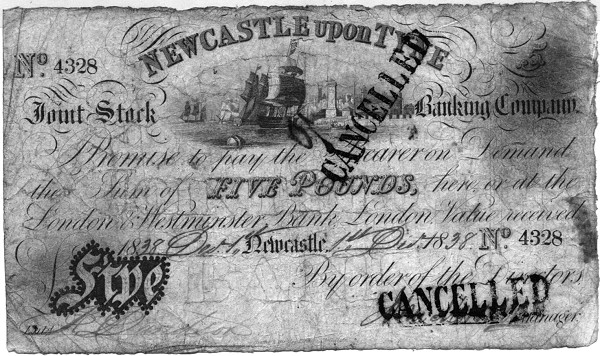 NEWCASTLE upon TYNE
No. 4328
Joint Stock Banking Company.
CANCELLED
I Promise to pay the Bearer on Demand
the Sum of FIVE POUNDS, here, or at the
London & Westminster Bank London. Value received
1838 Dec 1st Newcastle, 1st Dec 1838 No. 4328
Five By order of the Directors
CANCELLED
Manager.